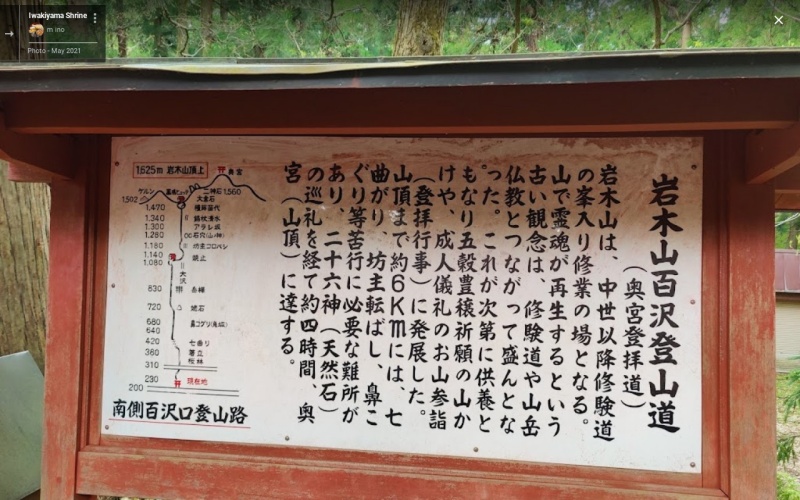 Iwakiyama Shrine
m ino
Photo - May 2021
岩木山百沢登山道
（奥宮登拝道）
岩木山は、中世以降修験道
の峯入り修業の場となる。
山で霊魂が再生するという
古い観念は、修験道や山岳
仏教とつながって盛んとな
った。これが次第に供養と
もなり五穀豊穣祈願の山か
けや、成人儀礼のお山参詣
（登拝行事）に発展した。
山頂まで約6Kmには、七
曲がり、坊主転ばし、鼻こ
ぐり等苦行に必要な難所が
あり、二十六神（天然石）
の巡礼を経て約四時間、奥
宮（山頂）に達する。
1,625m 岩木山頂上
奥宮
二神石 1,560
1,502
大倉石
1,470 種蒔苗代
1,340 錫杖清水
1,300
1,280
1,180 坊主コロバシ
1,140 焼止
1,080
大沢
830
720 姥石
680 鼻コグリ
640
420 七曲り
360
310 桜林
230 現在地
200
南側百沢口登山路